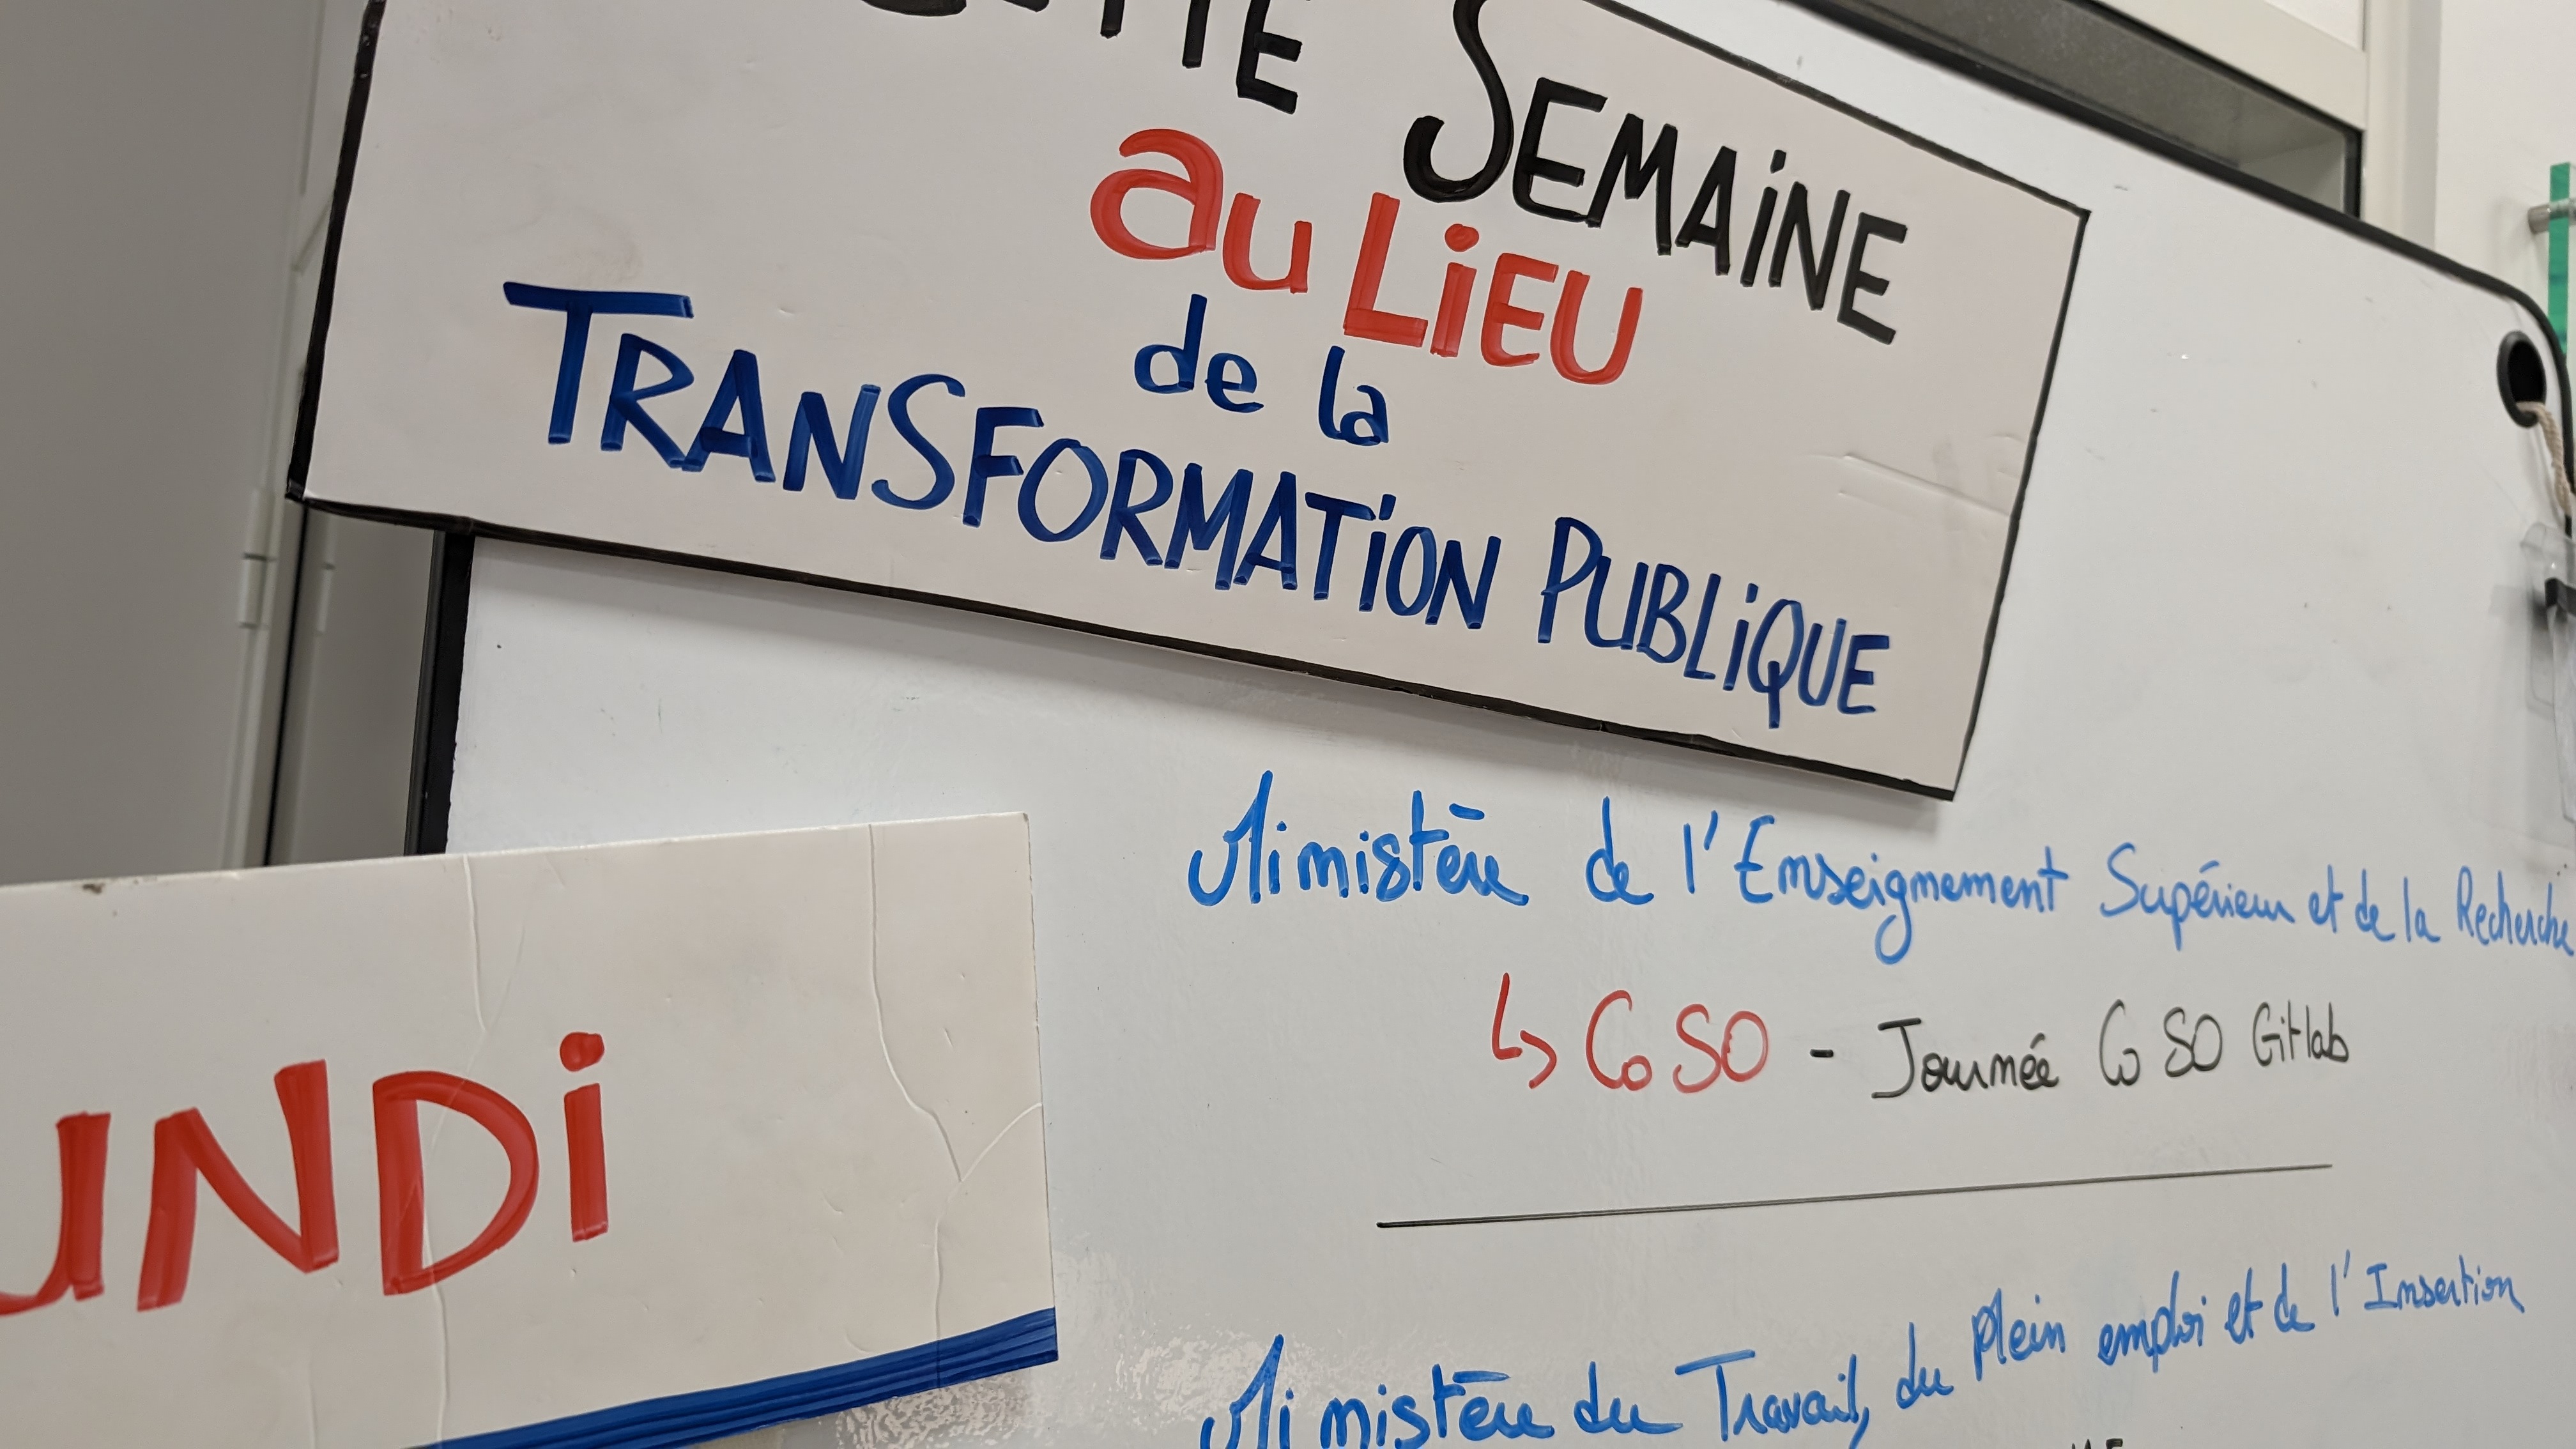 CETTE SEMAINE
au LiEU
de la
TRANSFORMATiON PUBLiQUE
Ministère de l'Enseignement Supérieur et de la Recherche
↳ CoSO - Journée CoSO Gitlab
UNDi
Ministère du Travail, du plein emploi et de l'Insertion